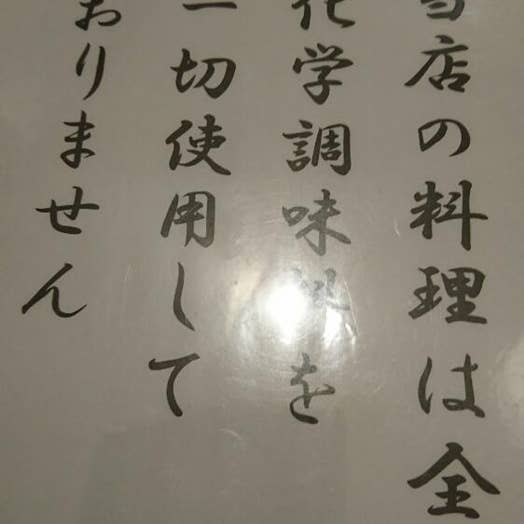 当店の料理は全
化学調味料を
一切使用して
おりません